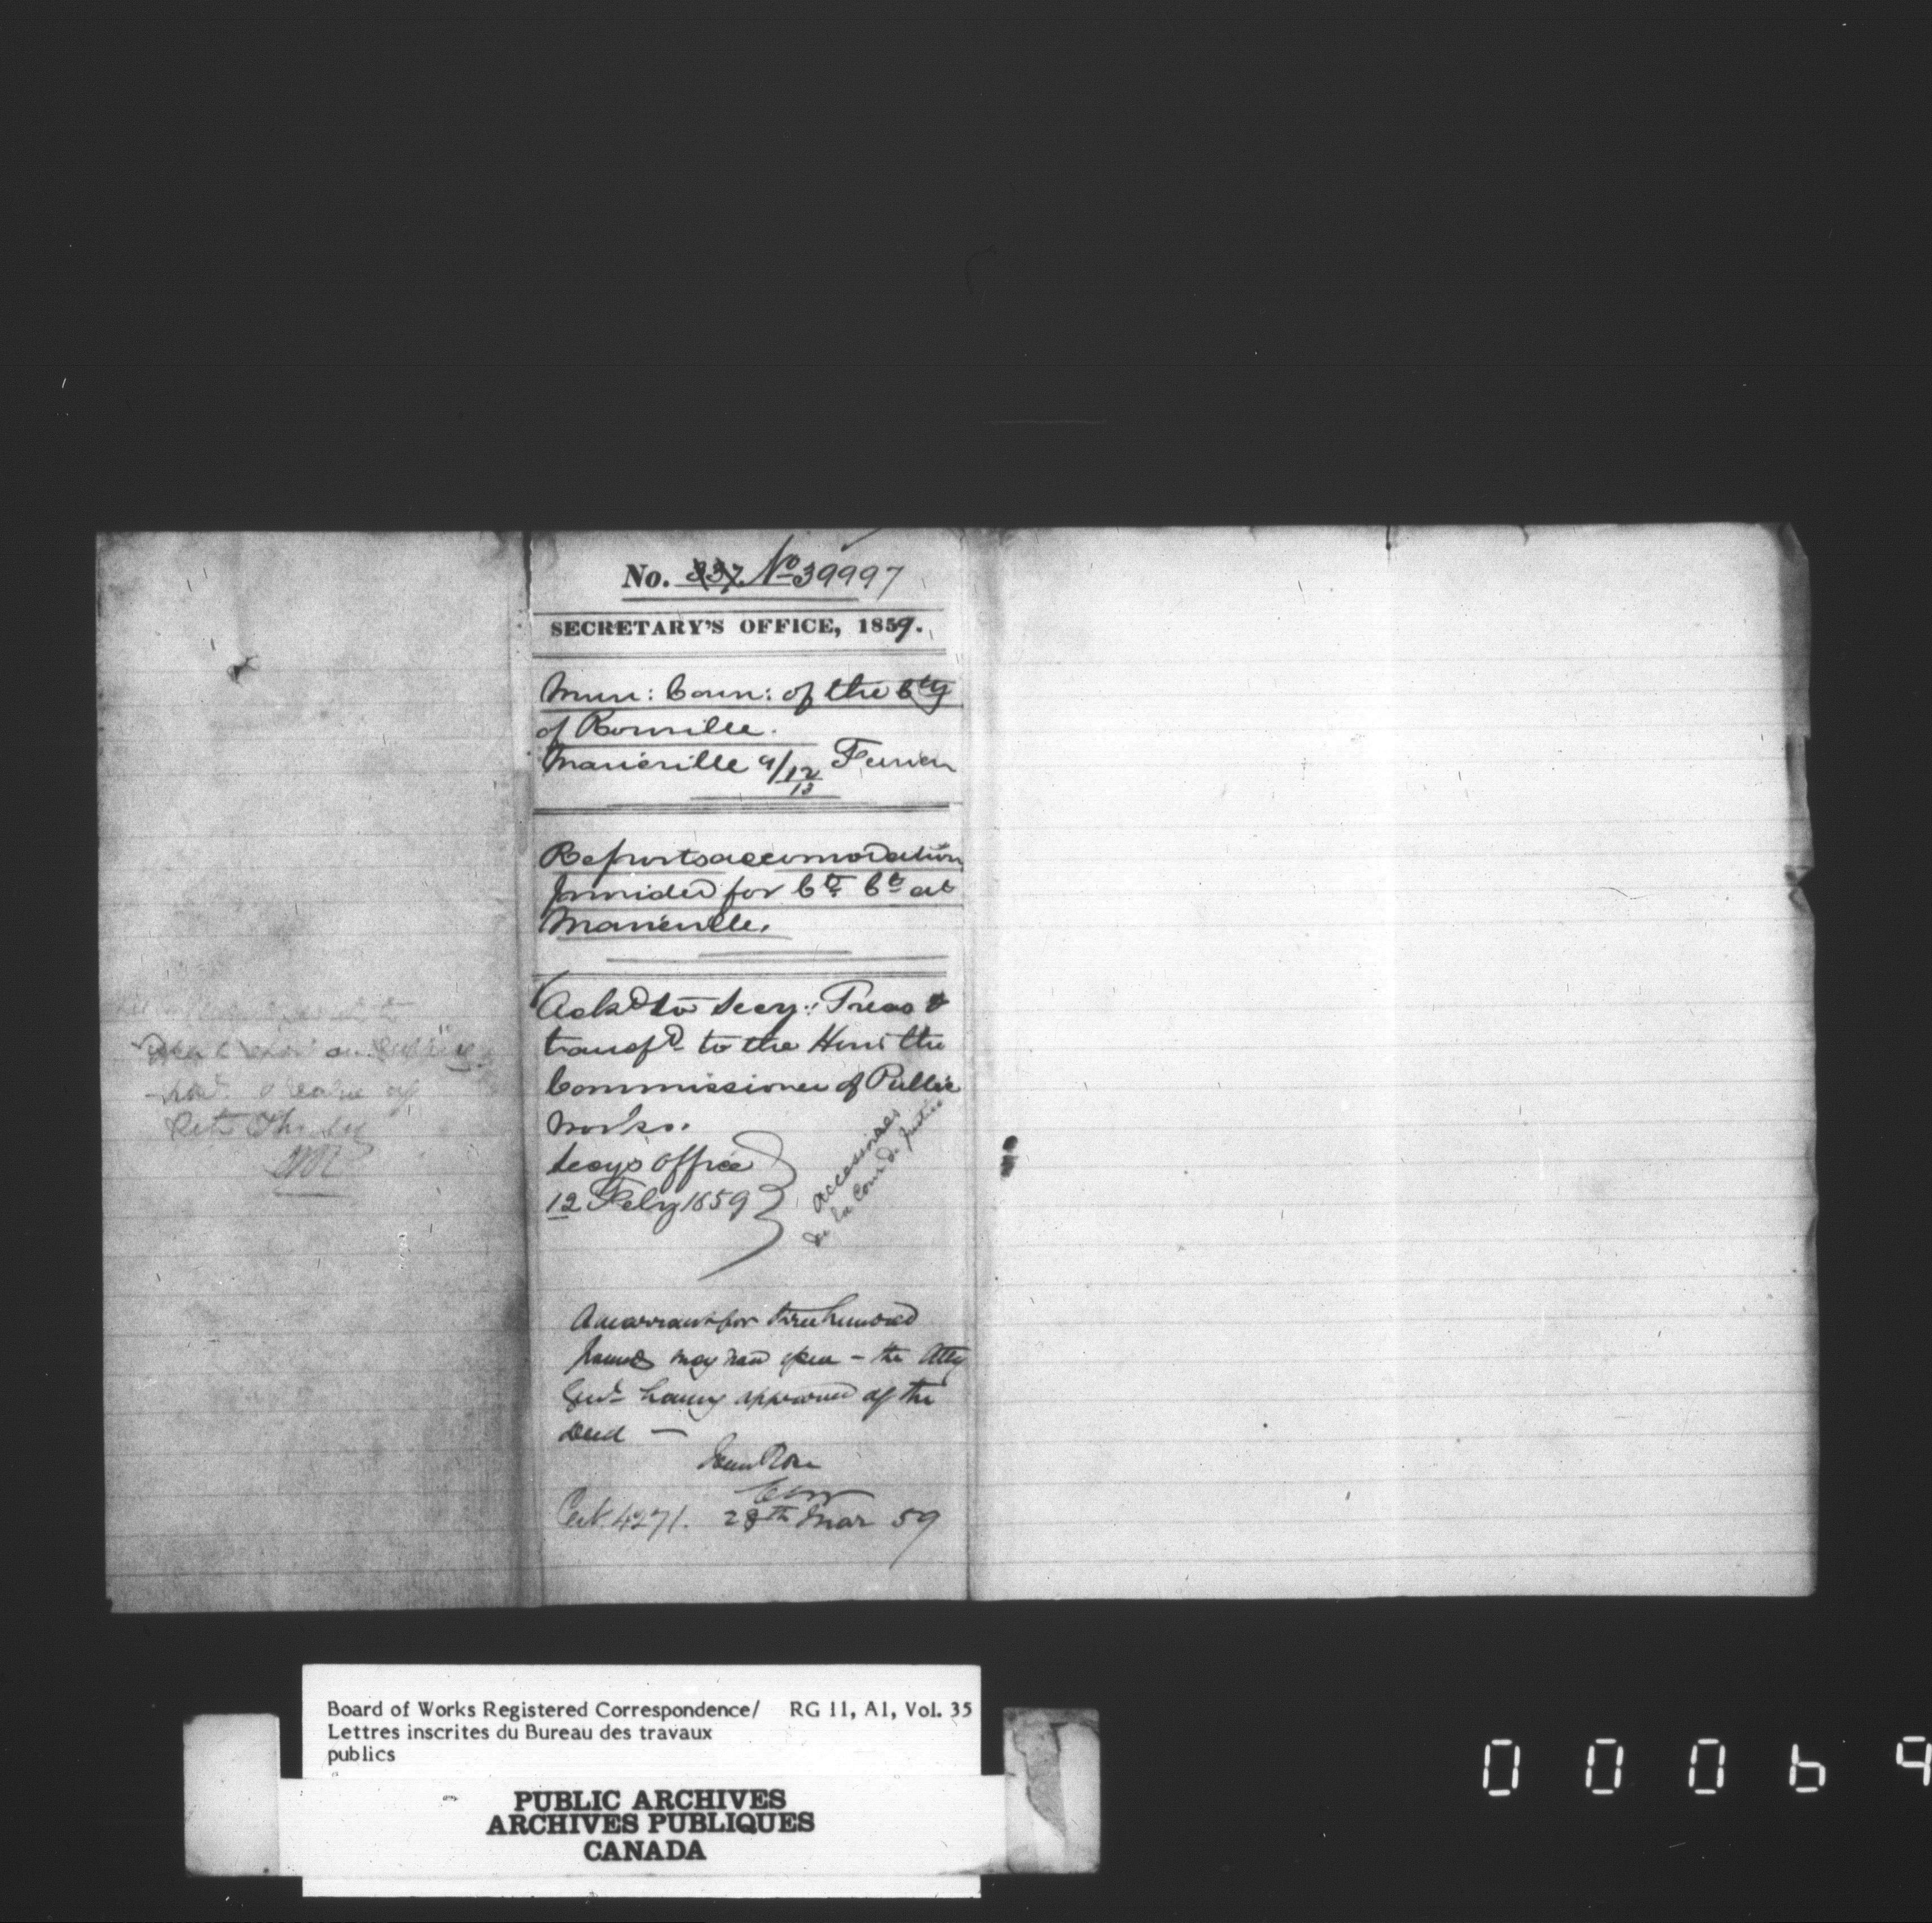 No. 337 No 39997
SECRETARY'S OFFICE, 1859.
Mun: Coun: of the Cty
of Rouville.
Marieville 9/12/13
Reports accomodation
provided for Ct. Ct. at
Marieville.
Ackd to Secy: Treas &
transfd to the Hon: the
Commissioner of Public
Works.
Secys Office
12 Feby 1859
de la Cour de Justice
A warrant for three hundred
pounds may now open - the Atty
Genl having approved of the
Deed —
John Rose
Cert. 4271. 28th Mar 59
Board of Works Registered Correspondence/ RG 11, A1, Vol. 35
Lettres inscrites du Bureau des travaux
publics
PUBLIC ARCHIVES
ARCHIVES PUBLIQUES
CANADA
0 0 0 6 9